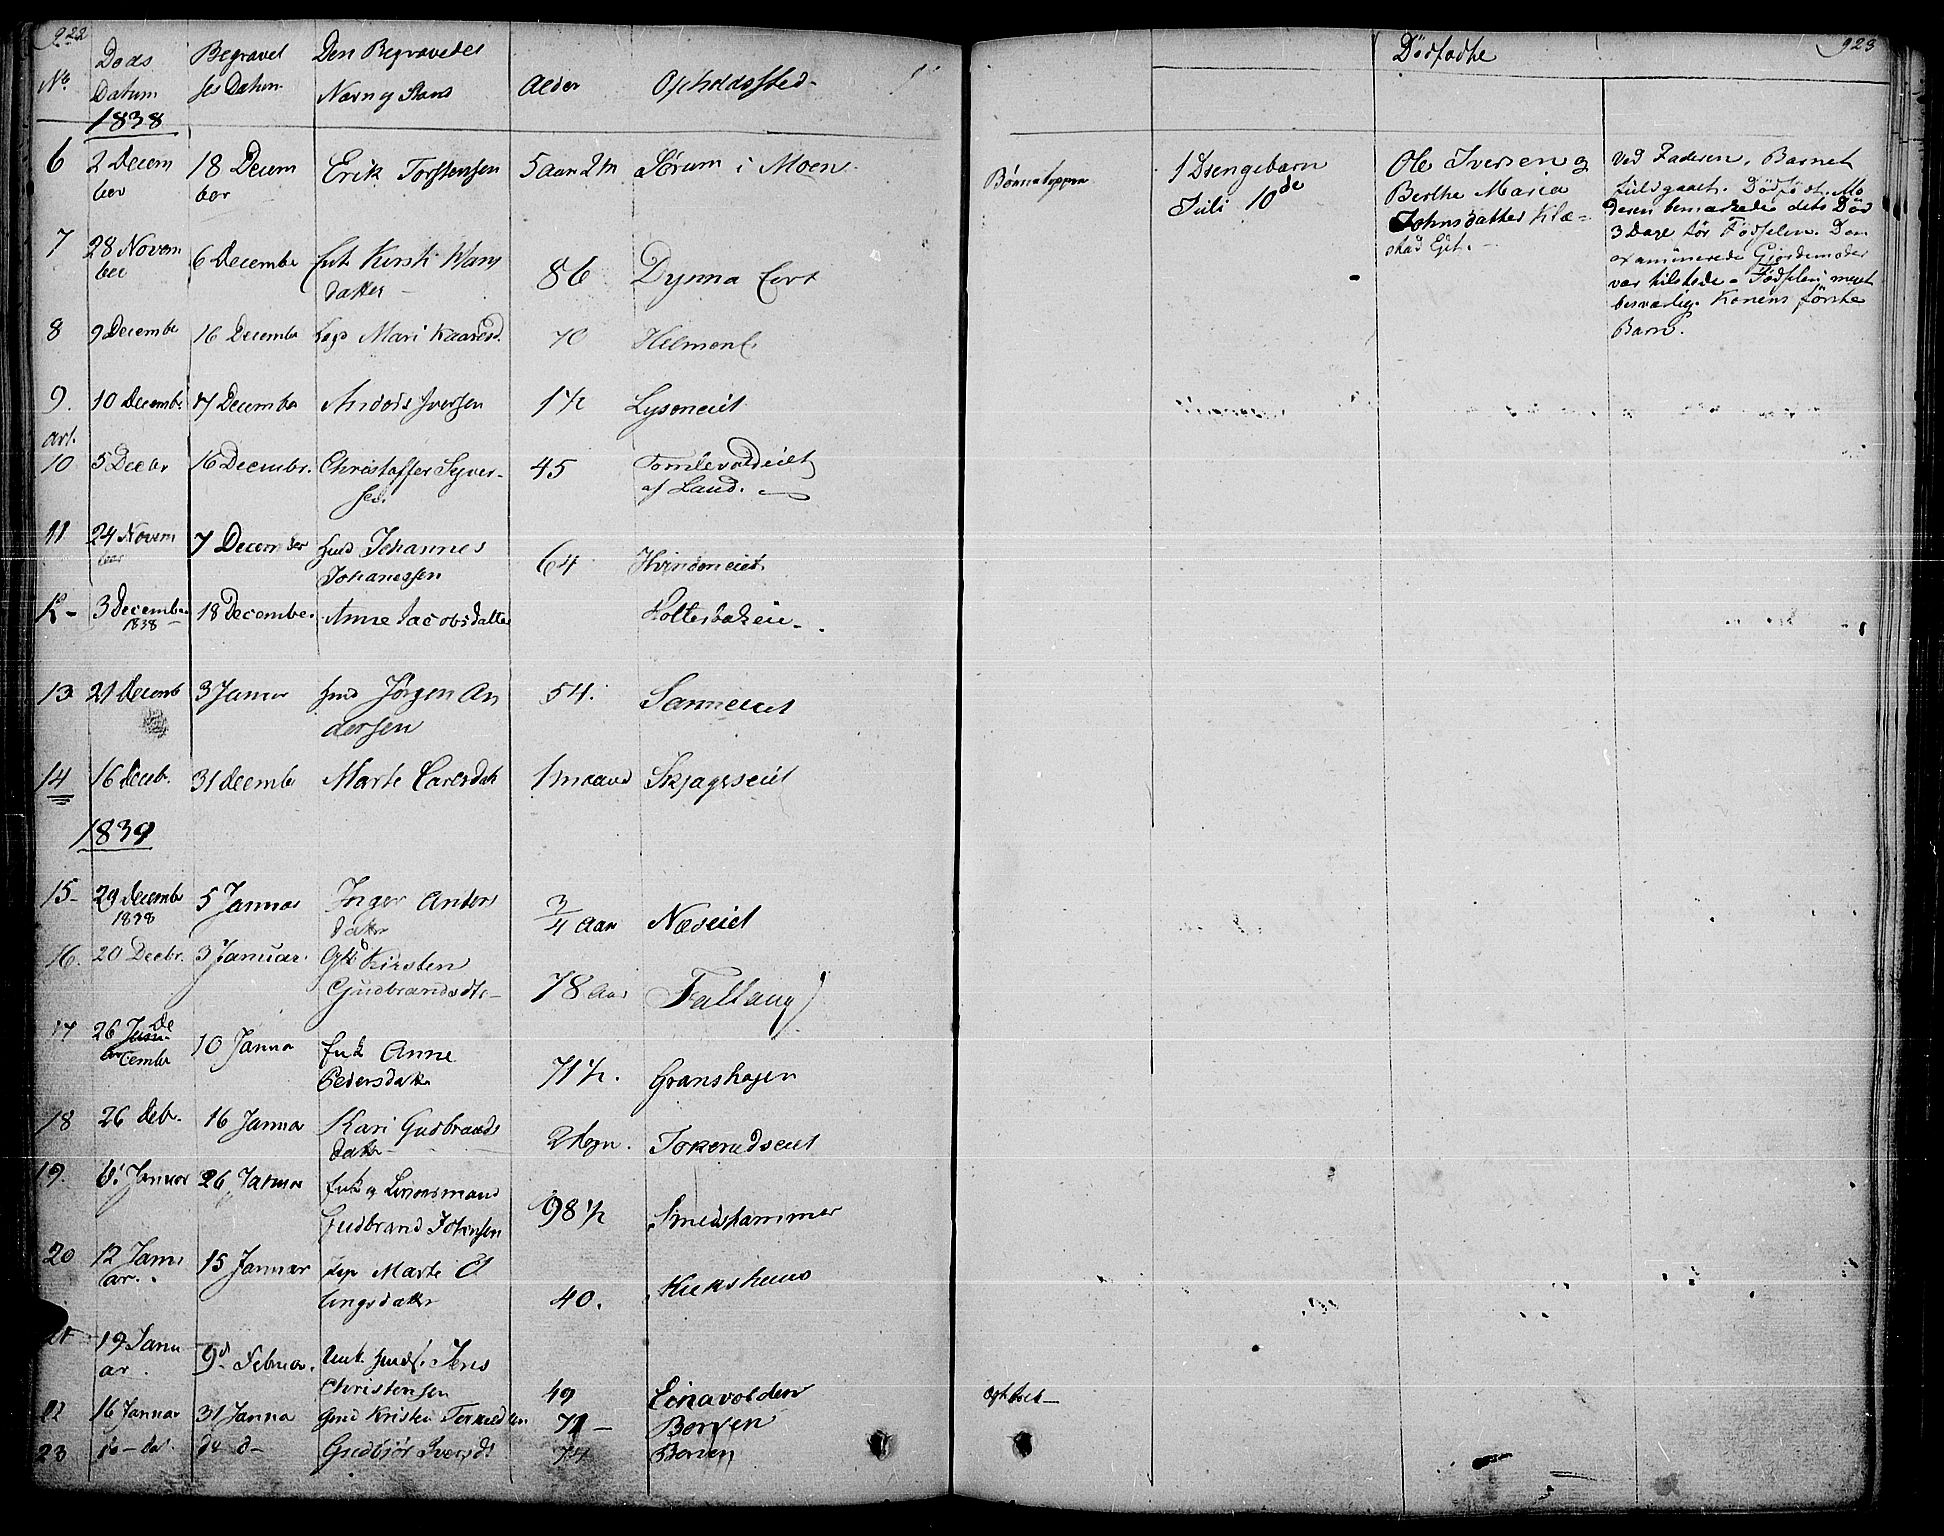 922
No. Døds Datum Begravelses Datum Den Begravedes Navn og Stand Alder Opholdssted
1838
6 2 Decem 18 Decem Erik Torstensen 5 aar 2 m Sørum i Moen
ber ber
7 28 Novem 6 Decembe fuk Kirsti Hans
ber datter 86 Dynna
8 9 Decembe 16 Decembe Legd Mari Kaaresd. 70 Helmen
9. 10 Decemb. 17 Decembe Anders Iversen 1 ½ Lysoneiet
art.
10 5 Decbr 16 Decembr. Christoffer Syver- 45 Tomlevoldeiet
sen. af Land.
11 24 Novem 7 December hmd Johannes
ber Johanessen 64 Hvindeneiet
12- 3 December 18 December Anne Jacobsdatter Holtesbakein
1838
13 21 Decemb 3 Januar hmd Jørgen An 54. Sanneeiet
dersen
14 16 Decb. 31 Decembe Marte Larsdat 1 maaned Skjagerseiet
1839
15- 29 Decembe 5 Januar Inger Anders
1838 datter 3/4 Aar Næseiet
16. 20 Decbr. 3 Januar. Gfk Kirsten
Gudbrandsdtr- 78 Aar Fallang
17 26 De
cember 10 Janua fuk Anne
Pedersdatter 71 ½. Granshagen
18 26 Deb. 16 Janua Kari Gudbrands
datter 2 dgn. Tokerudseiet
19. 6 Januar 26 Janua fuk og Lensmand
Gudbrand Johnsen 98 ½ Smedshammer
20 12 Janu 15 Januar Lep Marte El
ar. lingsdatter 40.
21 19 Janu 9d Februar. Jens
ar. Christensen 49 Einavolden
22 16 Januar 31 Janua Gmd Kristen Torkildsen 71 - Borgen
23 16 - dst. d d- Gudbjør Iversdt 74 Borven
923
Dødfødte
Bønnatoppen 1 Drengebarn
Juli 10de
Ole Iversen og
Berthe Maria
Johnsdatter Klæ-
stad Eiet.-
Ved Faderen, Barnet
fuldgaaet. Dødfødt. Mo
deren bemærkede dets Død
3 Dage før Fødselen. Den
examinerede Gjordemoder
var tilstede. Fødselen meget
besværlig. Konens første
Barn.